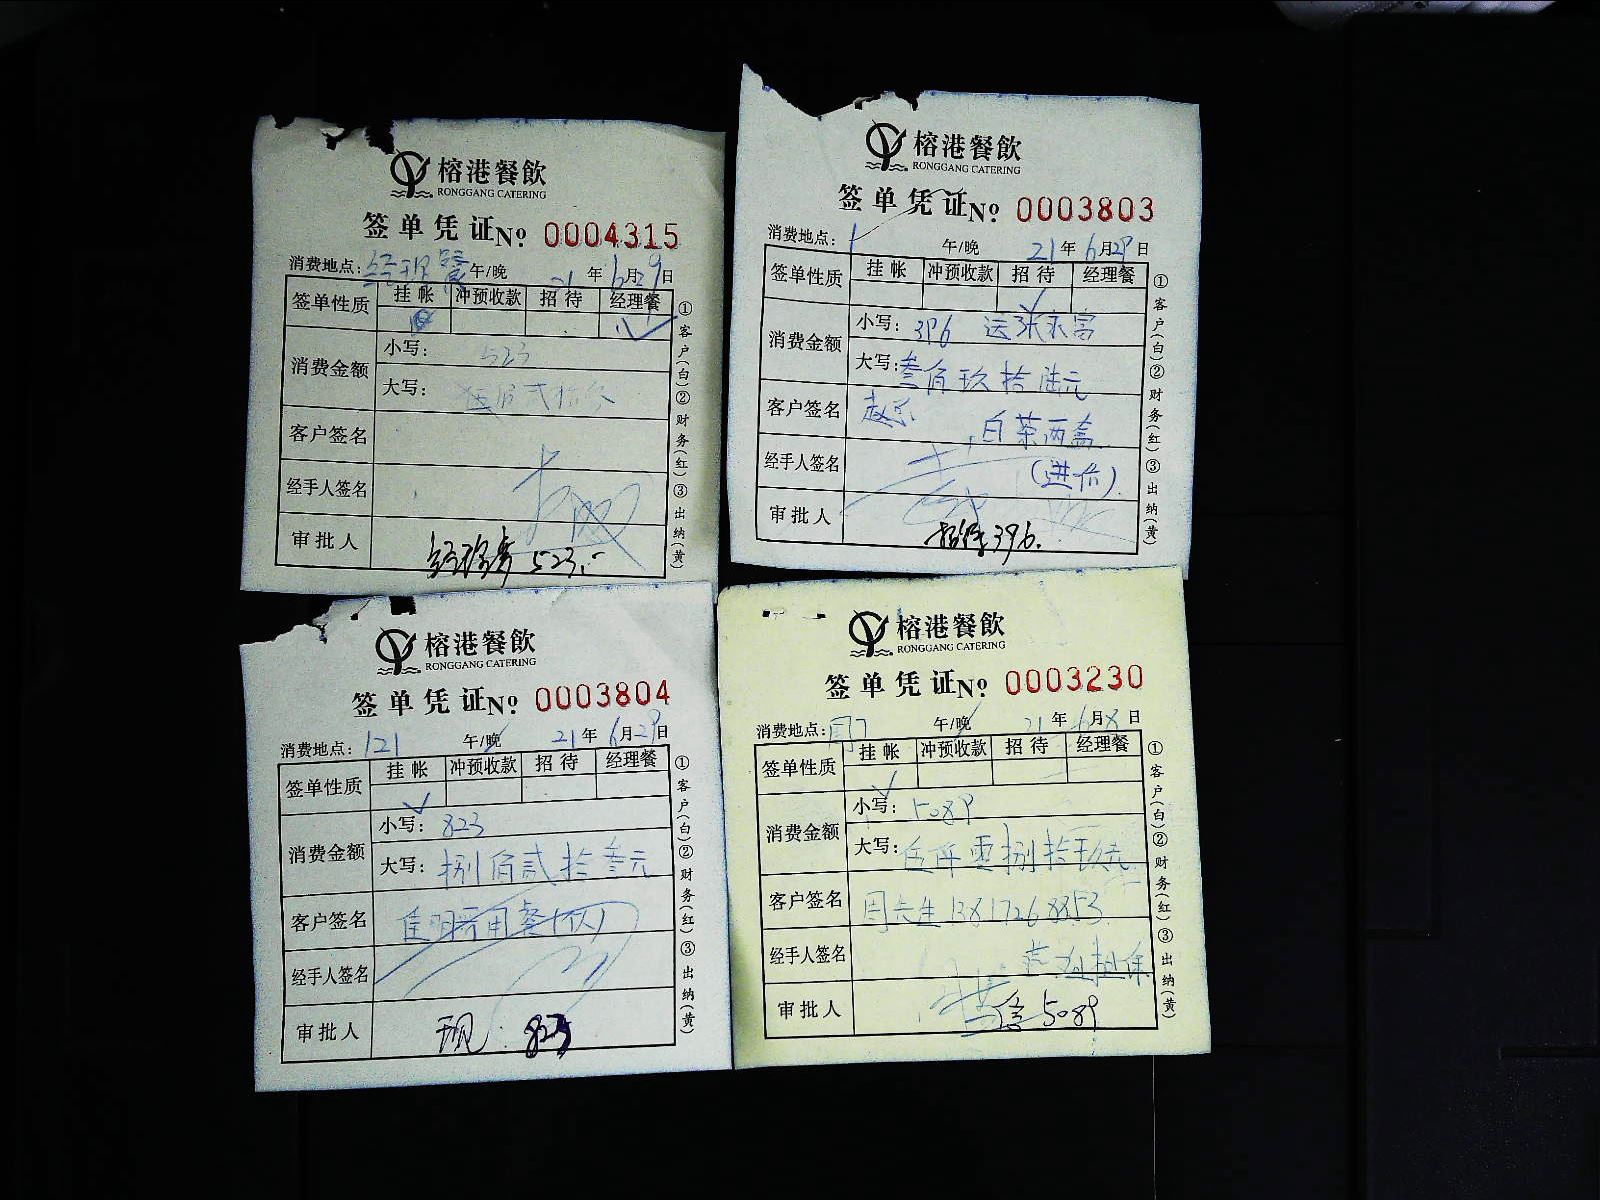 榕港餐飲
RONGGANG CATERING
签单凭证 No. 0004315
消费地点: 经理餐 午/晚 21年6月29日
签单性质 挂帐 冲预收款 招待 经理餐
消费金额 小写: 523
大写:
客户签名
经手人签名
审批人 经理餐 523.-
①客户(白)②财务(红)③出纳(黄)
榕港餐飲
RONGGANG CATERING
签单凭证 No. 0003803
消费地点: 午/晚 21年6月29日
签单性质 挂帐 冲预收款 招待 经理餐
消费金额 小写: 396 送张永富
大写: 叁佰玖拾陆元
客户签名 白茶两盒
经手人签名 (进价)
审批人 招待 396.
①客户(白)②财务(红)③出纳(黄)
榕港餐飲
RONGGANG CATERING
签单凭证 No. 0003804
消费地点: 121 午/晚 21年6月29日
签单性质 挂帐 冲预收款 招待 经理餐
消费金额 小写: 823
大写: 捌佰贰拾叁元
客户签名
经手人签名
审批人 现: 823
①客户(白)②财务(红)③出纳(黄)
榕港餐飲
RONGGANG CATERING
签单凭证 No. 0003230
消费地点: 午/晚 21年6月8日
签单性质 挂帐 冲预收款 招待 经理餐
消费金额 小写: 5089
大写: 伍仟零捌拾玖元
客户签名 周先生 13817268853
经手人签名
审批人 5089
①客户(白)②财务(红)③出纳(黄)